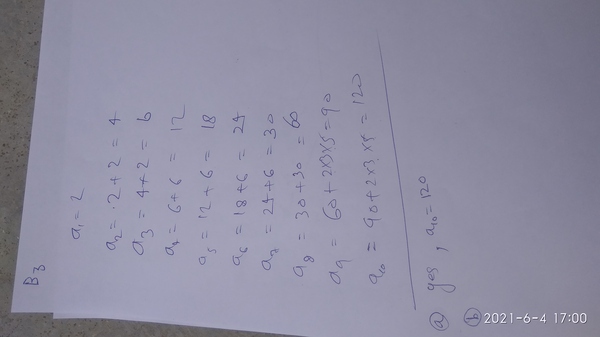 B3
a₁ = 2
a₂ = 2 + 2 = 4
a₃ = 4 + 2 = 6
a₄ = 6 + 6 = 12
a₅ = 12 + 6 = 18
a₆ = 18 + 6 = 24
a₇ = 24 + 6 = 30
a₈ = 30 + 30 = 60
a₉ = 60 + 2×3×5 = 90
a₁₀ = 90 + 2×3×5 = 120
(a) yes, a₁₀ = 120
(b)
2021-6-4 17:00